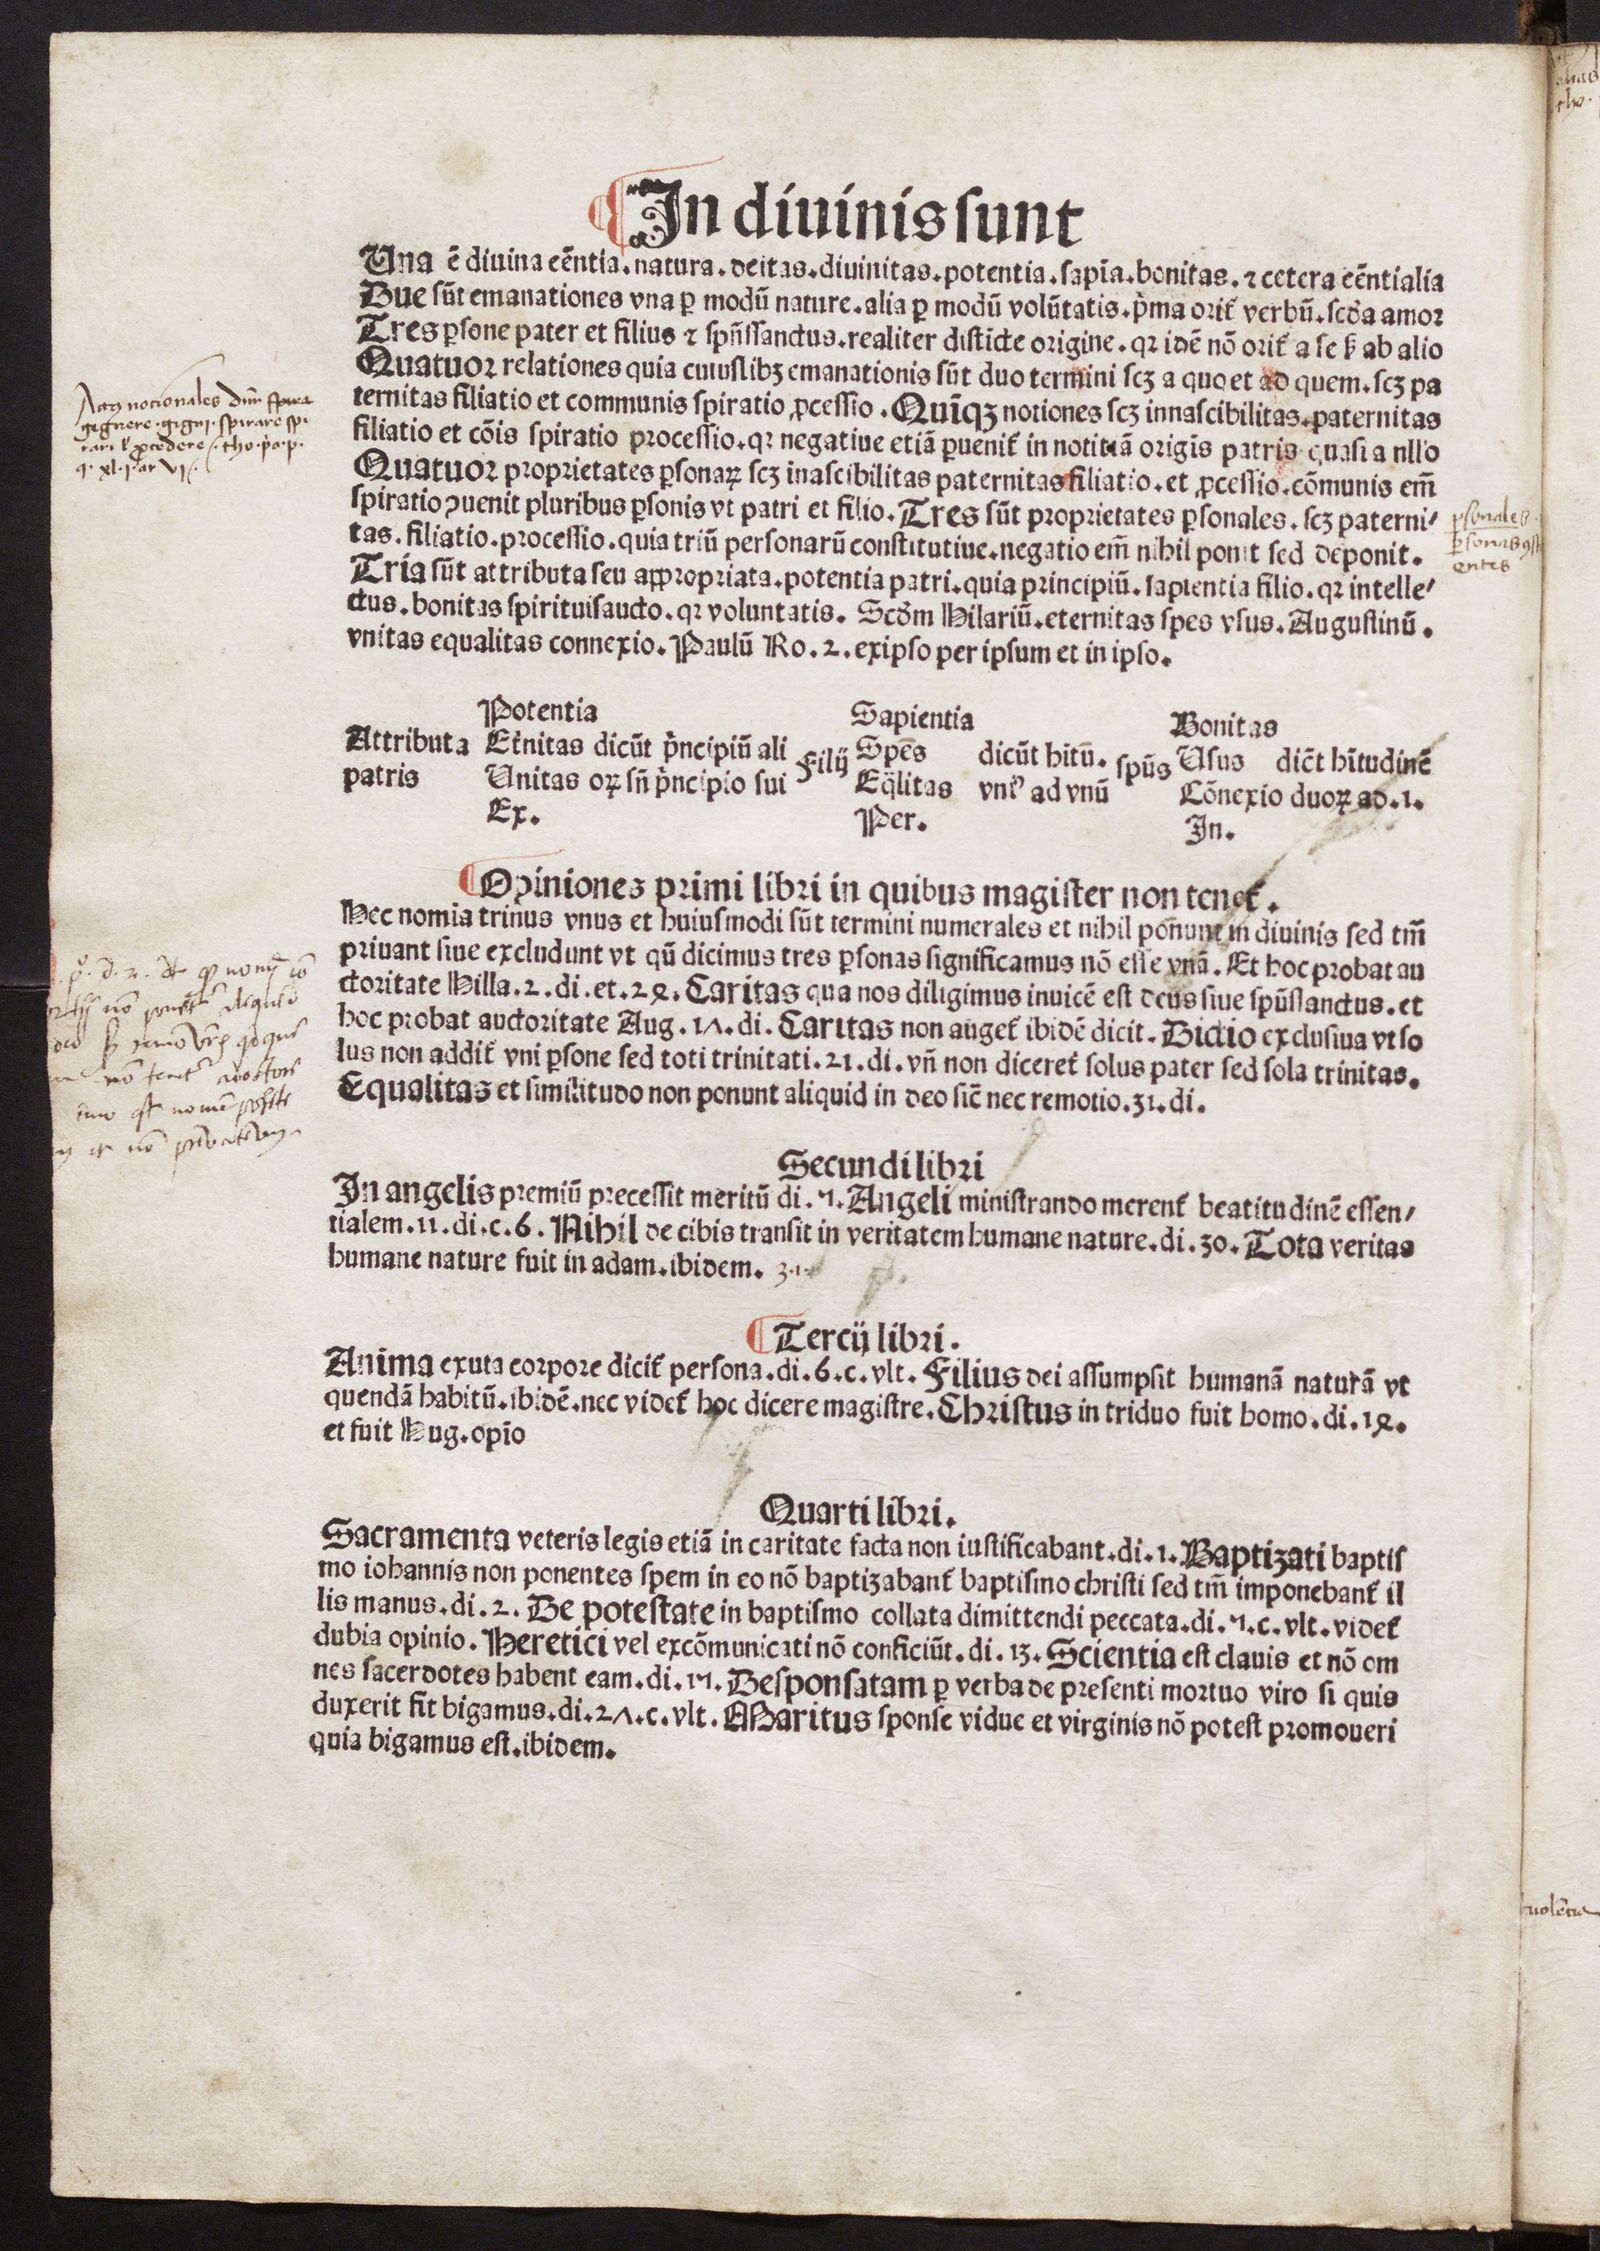 In diuinis sunt
Una ē diuina eēntia. natura. deitas. diuinitas. potentia. sapīa. bonitas. ⁊ cetera eēntialia
Due sūt emanationes vna ꝑ modū nature. alia ꝑ modū volūtatis. p̄ma orit᷑ verbū. scđa amor
Tres ꝑsone pater et filius ⁊ spūssanctus. realiter disticte origine. qꝛ idē nō orit᷑ a se ẜ ab alio
Quatuor relationes quia cuiuslibꝫ emanationis sūt duo termini scꝫ a quo et ad quem. scꝫ pa
ternitas filiatio et communis spiratio ꝓcessio. Quīqꝫ notiones scꝫ innascibilitas. paternitas
filiatio et cōis spiratio processio. qꝛ negatiue etiā ꝑuenit᷑ in notitiā origīs patris quasi a nllo
Quatuor proprietates ꝑsonaꝝ scꝫ inascibilitas paternitas filiatio. et ꝓcessio. cōmunis em̄
spiratio ꝯuenit pluribus ꝑsonis vt patri et filio. Tres sūt proprietates ꝑsonales. scꝫ paterni/
tas. filiatio. processio. quia triū personarū constitutiue. negatio em̄ nihil ponit sed deponit.
Tria sūt attributa seu aꝓpropriata. potentia patri. quia principiū. sapientia filio. qꝛ intelle/
ctus. bonitas spirituisaucto. qꝛ voluntatis. Scđm Hilariū. eternitas spes vsus. Augustinū.
vnitas equalitas connexio. Paulū Ro. 2. ex ipso per ipsum et in ipso.
Actꝰ nocionales
gignere. gigni. spirare spi
rari ꝓcedere tho. p. p.
q. xl. ar vi
ꝑsonales
ꝑsonas ꝯsti
entes
Potentia Sapientia Bonitas
Attributa Et̄nitas dicūt p̄ncipiū ali Filij Spēs dicūt hitū. spūs Usus dict̄ hītudinē
patris Unitas oꝝ sn̄ p̄ncipio sui Eq̄litas vniꝰ ad vnū Cōnexio duoꝝ ad. 1.
Ex. Per. In.
Opiniones primi libri in quibus magister non tenet᷑.
Hec nomia trinus vnus et huiusmodi sūt termini numerales et nihil ponunt in diuinis sed tm̄
priuant siue excludunt vt qū dicimus tres ꝑsonas significamus nō esse vnā. Et hoc probat au
ctoritate Hilla. 2. di. et. 24. Caritas qua nos diligimus inuicē est deus siue spūssanctus. et
hoc probat auctoritate Aug. 17. di. Caritas non auget᷑ ibidē dicit. Dictio exclusiua vt so
lus non addit᷑ vni ꝑsone sed toti trinitati. 21. di. vn̄ non diceret᷑ solus pater sed sola trinitas.
Equalitas et similitudo non ponunt aliquid in deo sic̄ nec remotio. 31. di.
Secundi libri
In angelis premiū precessit meritū di. 5. Angeli ministrando merent᷑ beatitudinē essen/
tialem. 11. di. c. 6. Nihil de cibis transit in veritatem humane nature. di. 30. Tota veritas
humane nature fuit in adam. ibidem.
Tercij libri.
Anima exuta corpore dicit᷑ persona. di. 6. c. vlt. Filius dei assumpsit humanā naturā vt
quendā habitū. ibidē. nec videt᷑ hoc dicere magistre. Christus in triduo fuit homo. di. 1
et fuit Hug. opīo
Quarti libri.
Sacramenta veteris legis etiā in caritate facta non iustificabant. di. 1. Baptizati baptis
mo iohannis non ponentes spem in eo nō baptizabant᷑ baptismo christi sed tm̄ imponebant᷑ il
lis manus. di. 2. De potestate in baptismo collata dimittendi peccata. di. 5. c. vlt. videt᷑
dubia opinio. Heretici vel excōmunicati nō conficiūt. di. 13. Scientia est clauis et nō om
nes sacerdotes habent eam. di. 15. Desponsatam ꝑ verba de presenti mortuo viro si quis
duxerit fit bigamus. di. 27. c. vlt. Maritus sponse vidue et virginis nō potest promoueri
quia bigamus est. ibidem.